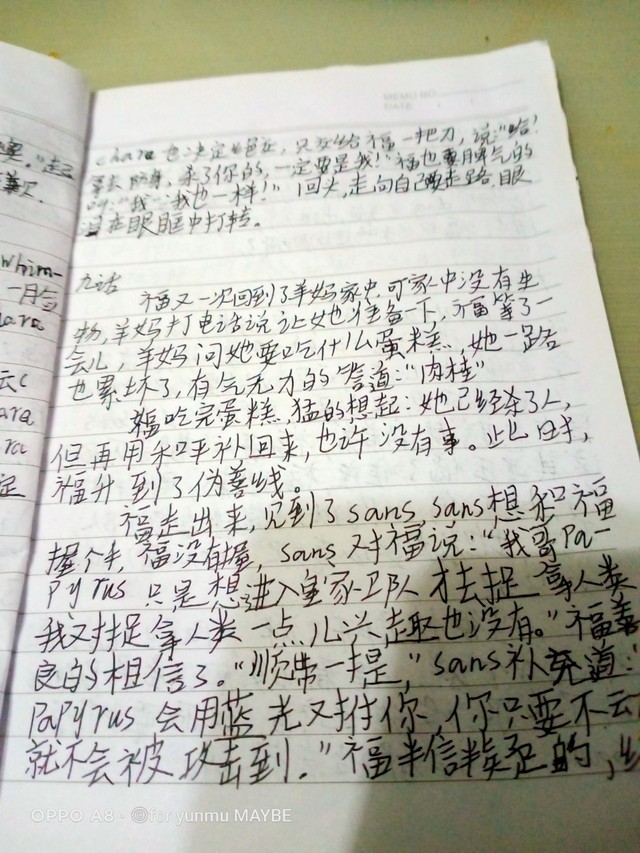 要."起
whim-
ara
云c
ara
ra
定
MEMO NO.
DATE
chara 也决定 只交给福一把刀,说:"哈!
拿去防身,杀了你的,一定要是我!"福也 脾气的
"我…我也一样!" 回头,走向自己要走路,眼
在眼眶中打转。
九话
福又一次回到了羊妈家中,可家中没有生
物,羊妈打电话说让她准备一下,福等了一
会儿,羊妈问她要吃什么蛋糕,她一路
也累坏了,有气无力的答道:"肉桂"
福吃完蛋糕,猛的想起:她已经杀了人,
但再用和平补回来,也许没有事。此时,
福升到了伪善线。
福走出来,见到了sans,sans想和福
握个手,福没有握,sans对福说:"我哥Pa-
Pyrus只是想进入皇家卫队才去捉拿人类
我对捉拿人类一点儿兴趣也没有。"福善
良的相信了。"顺带一提,"sans补充道:
PaPyrus会用蓝光对付你,你只要不云
就不会被攻击到."福半信半疑的,
OPPO A8 · ©foryunmu MAYBE